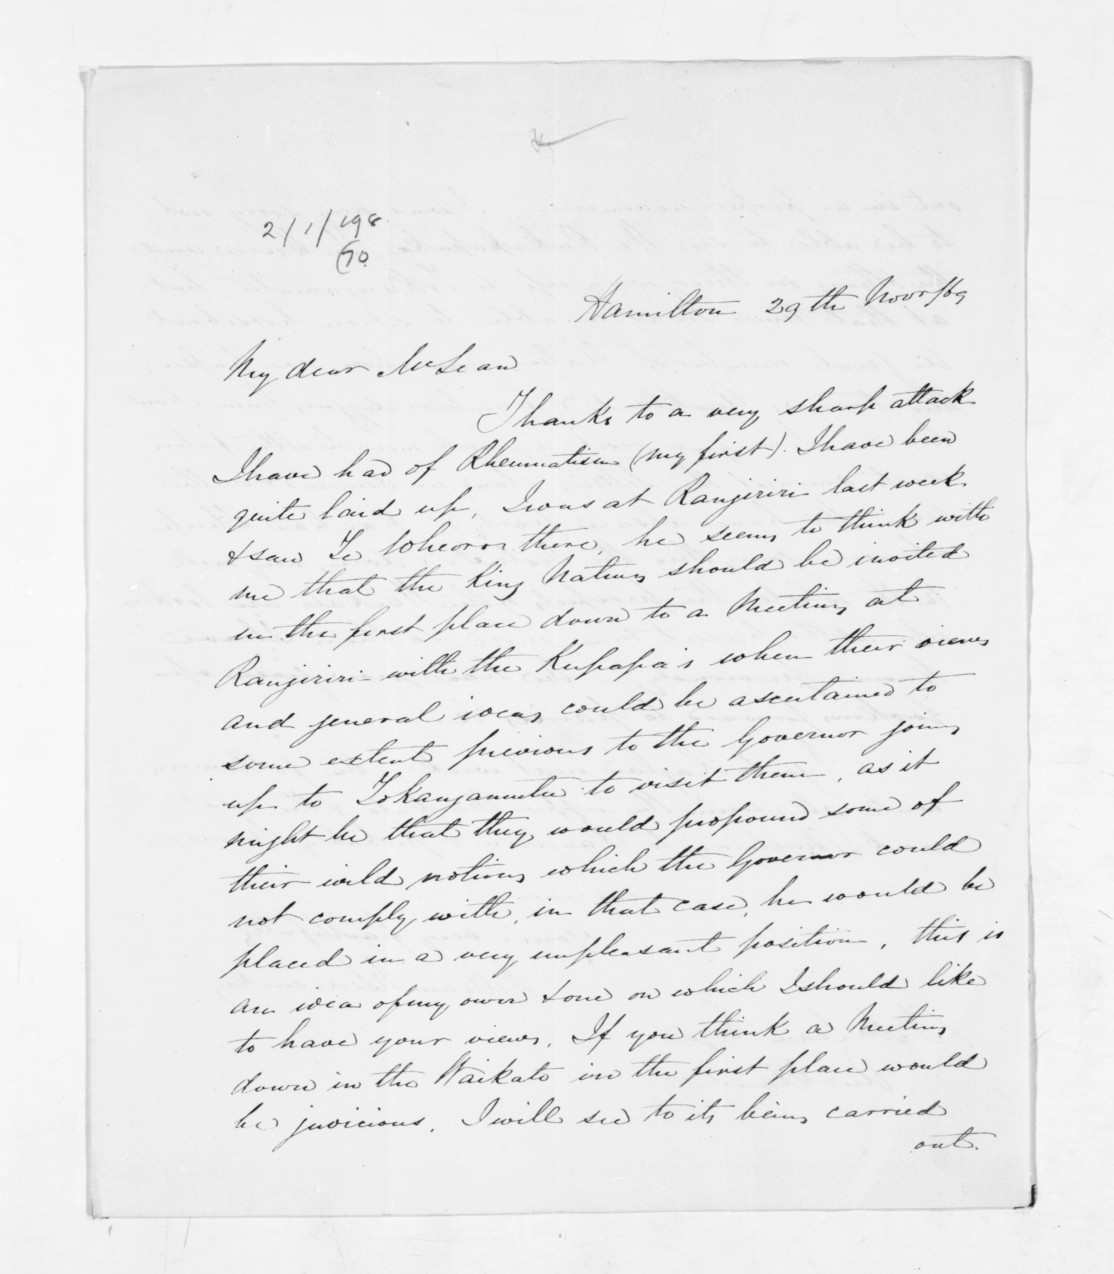 2/1/198
70.
Hamilton 29th Novr/69
My dear McLean
Thanks to a very sharp attack
I have had of Rheumatism (my first). I have been
quite laid up, I was at Rangiriri last week
& saw Te Wheoro there, he seems to think with
me that the King Natives should be invited
in the first place down to a Meeting at
Rangiriri with the Kupapa's when their views
and general ideas could be ascertained to
some extent previous to the Governor going
up to Tokangamutu to visit them, as it
might be that they would propound some of
their wild notions which the Governor could
not comply with, in that case, he would be
placed in a very unpleasant position, this is
an idea of my own & one on which I should like
to have your views. If you think a Meeting
down in the Waikato in the first place would
be judicious, I will see to its being carried
out.